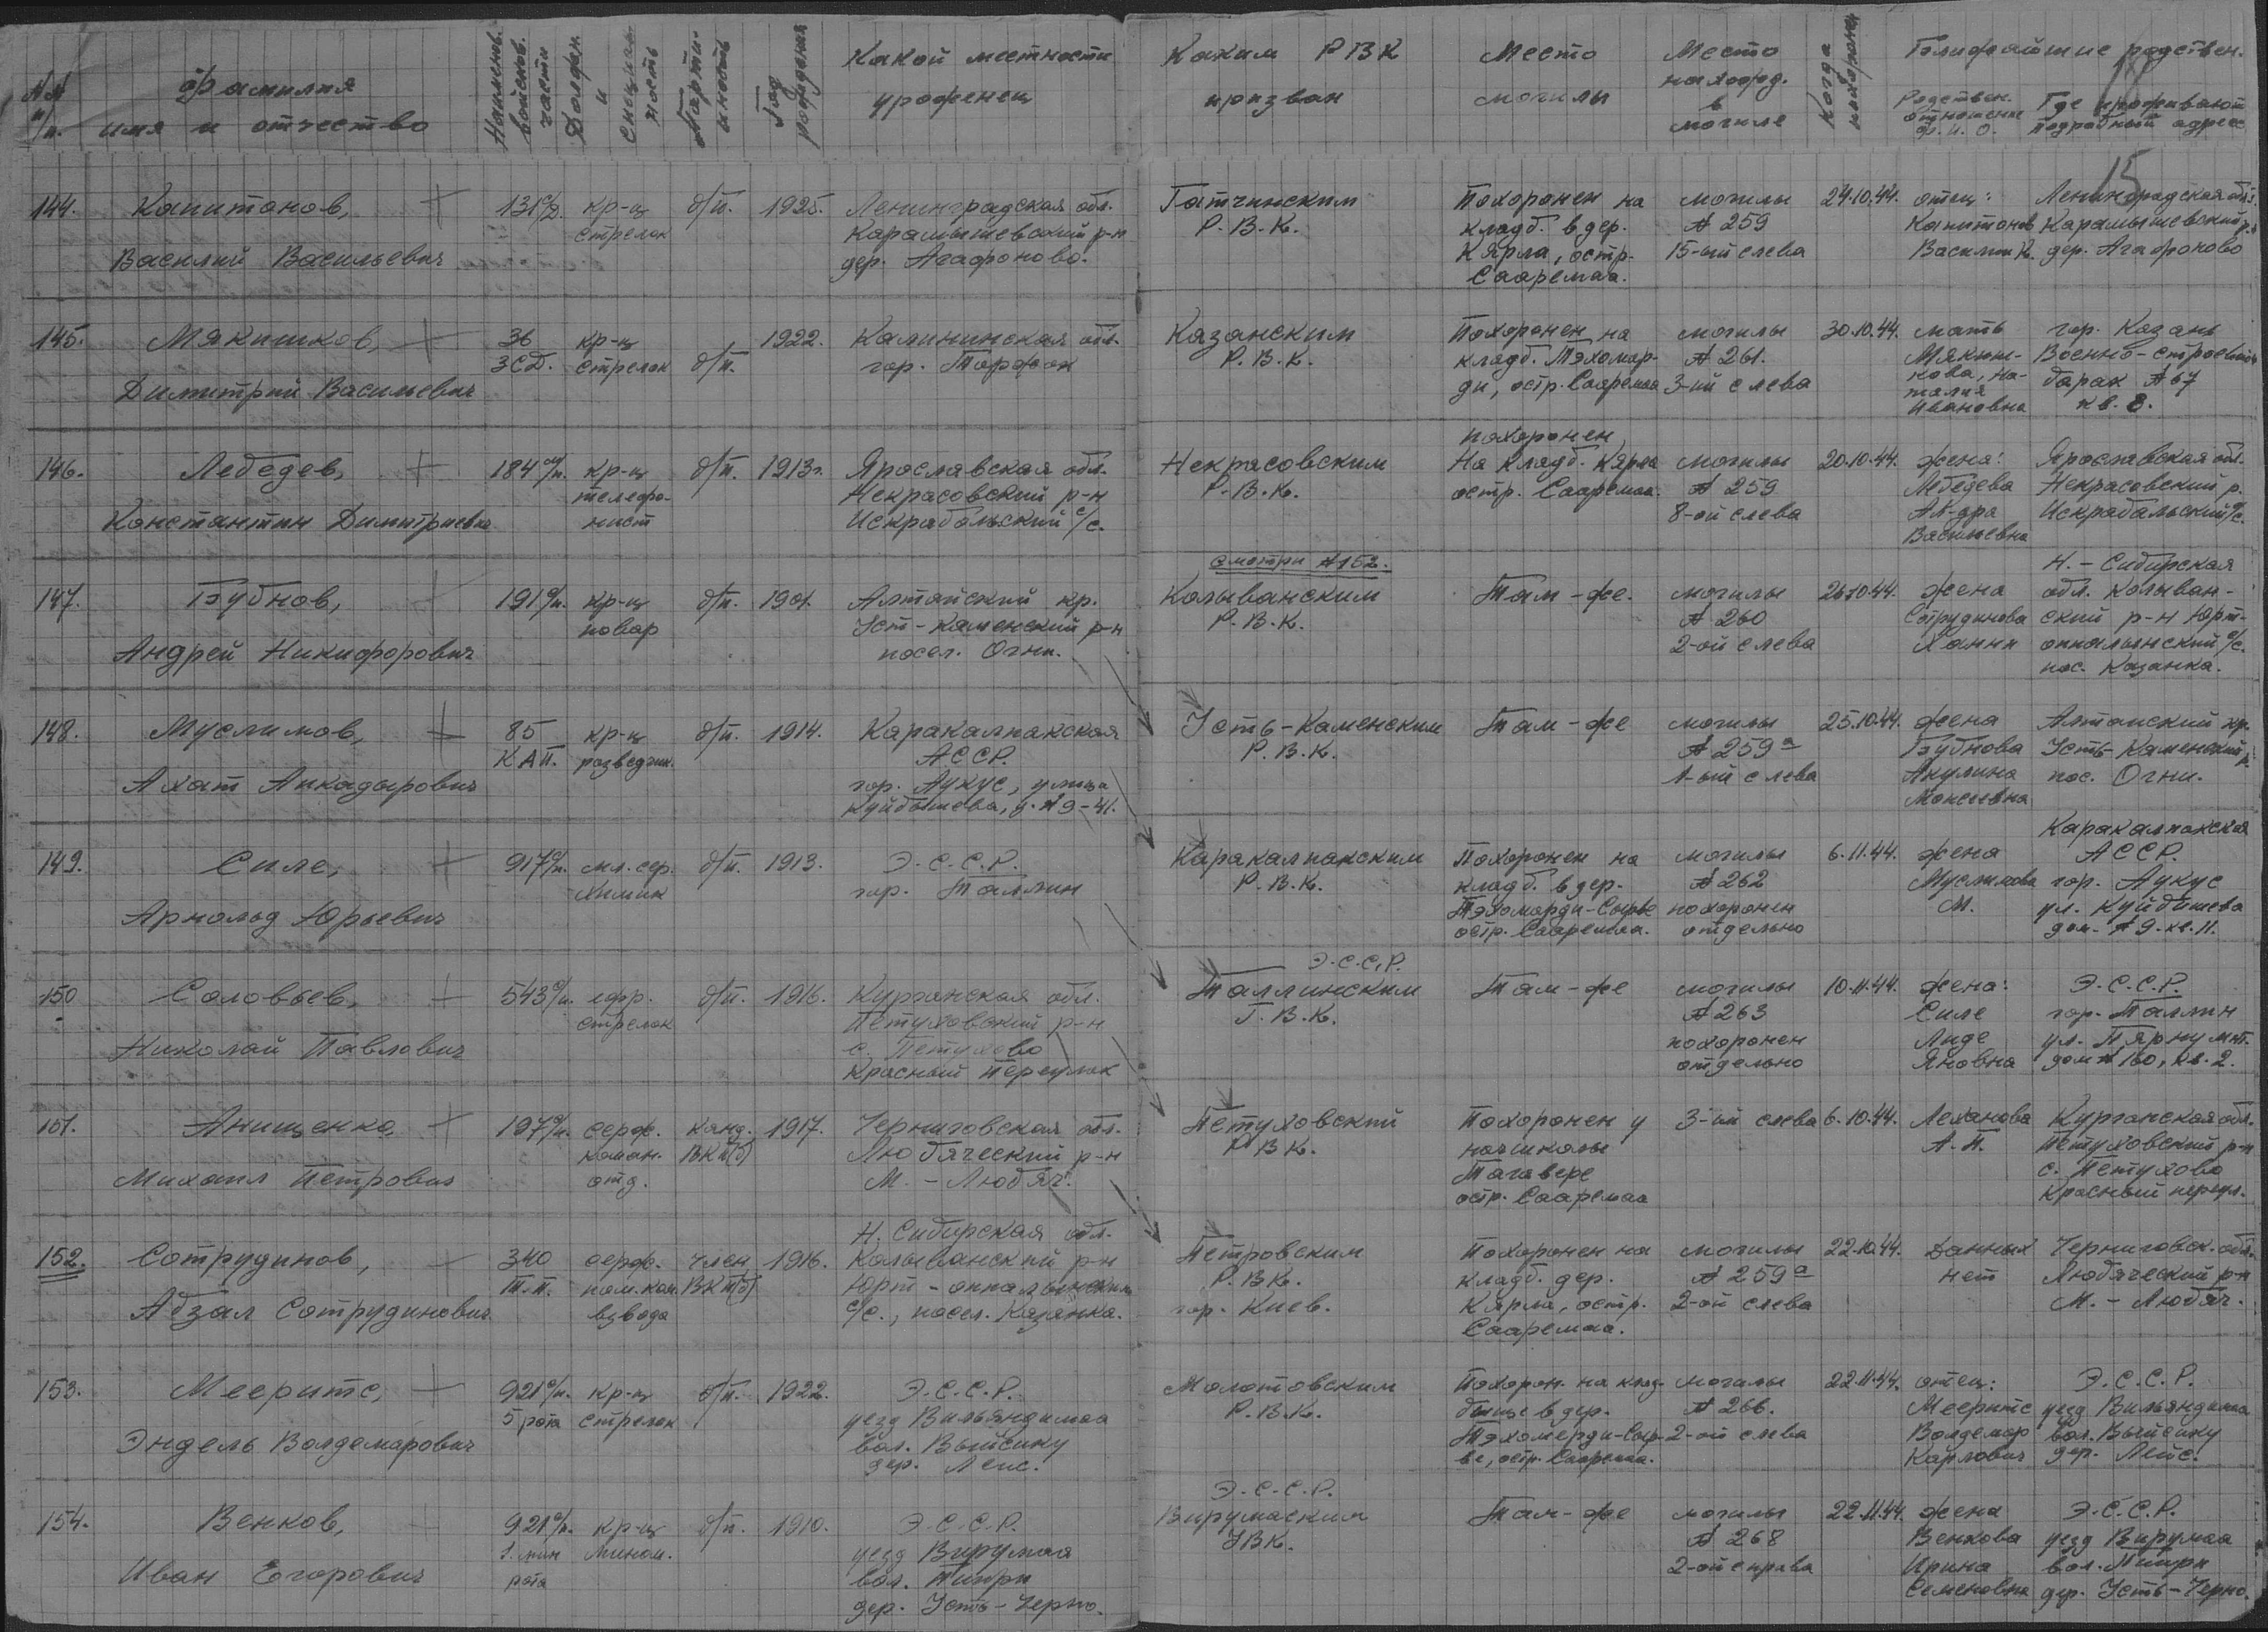 №№ п/п.
Фамилия
имя и отчество
Наименов. войсков. части
Должн. и специаль-ность
Парти-йность
Год рождения
Какой местности
уроженец
Каким РВК
призван
Место
могилы
Место
наход.
в
могиле
Когда похоронен
Ближайшие родствен.
Родствен.
отношение
ф. и. о.
Где проживают
подробный адрес
15
144. Капитонов,
Василий Васильевич
131 с/д.
кр-ц
стрелок
б/п. 1925.
Ленинградская обл.
Карамышевский р-н
дер. Агафоново.
Гатчинским
Р.В.К.
Похоронен на
кладб. в дер.
Кярла, остр.
Сааремаа.
могилы
№ 259
15-ый слева
24.10.44.
отец:
Капитонов
Василий К.
Ленинградская обл.
Карамышевский р-н
дер. Агафоново
145. Мякишков,
Димитрий Васильевич
36
ЗСД.
кр-ц
стрелок
б/п. 1922.
Калининская обл.
гор. Торжок
Казанским
Р.В.К.
Похоронен на
кладб. Тэхомар-
ди, остр. Сааремаа
могилы
№ 261.
3-ий слева
30.10.44.
мать
Мякиш-
кова, На-
талия
Ивановна
гор. Казань
Военно-
барак № 67
кв. 8.
146. Лебедев,
Константин Димитриевич
184 с/п.
кр-ц
телефо-
нист
б/п. 1913г.
Ярославская обл.
Некрасовский р-н
Искрабольский с/с.
Некрасовским
Р.В.К.
похоронен
На кладб. Кярла
остр. Сааремаа.
могилы
№ 259
8-ой слева
20.10.44.
жена:
Лебедева
Ал-дра
Васильевна
Ярославская обл.
Некрасовский р.
Искрабольский с/с.
смотри № 152.
147. Бубнов,
Андрей Никифорович
191 с/п.
кр-ц
повар
б/п. 1901.
Алтайский кр.
Уст-Каменский р-н
посел. Огни.
Колыванским
Р.В.К.
Там-же.
могилы
№ 260
2-ой слева
26.10.44.
жена
Сотрудинова
Ханни
Н.-Сибирская
обл. Колыван-
ский р-н Юрт-
оппалынский с/с.
пос. Казанка.
148. Муслимов,
Ахат Апкадырович
85
КАП.
кр-ц
разведчик.
б/п. 1914.
Каракалпакская
АССР.
гор. Аукус, улица
Куйбышева, д. № 9-41.
Усть-Каменским
Р.В.К.
Там-же
могилы
№ 259а
1-ый слева
25.10.44.
жена
Бубнова
Акулина
Моисеевна
Алтайский кр.
Усть-Каменский р.
пос. Огни.
149. Силе,
Арнольд Юрьевич
917 с/п.
мл. сер.
химик
б/п. 1913.
Э.С.С.Р.
гор. Таллин
Каракалпакским
Р.В.К.
Похоронен на
кладб. в дер.
Тэхомарди-Сырве
остр. Сааремаа.
могилы
№ 262
похоронен
отдельно
6.11.44.
жена
Муслимова
М.
Каракалпакская
АССР.
гор. Аукус
ул. Куйбышева
дом. № 9. кв. 11.
150 Соловьев,
Николай Павлович
543 с/п.
ефр.
стрелок
б/п. 1916.
Курганская обл.
Петуховский р-н
с. Петухово
Красный переулок
Э.С.С.Р.
Таллинским
Г.В.К.
Там-же
могилы
№ 263
похоронен
отдельно
10.11.44.
жена:
Силе
Лиде
Яновна
Э.С.С.Р.
гор. Таллин
ул. Пярну мнт.
дом № 160, кв. 2.
151. Анищенко,
Михаил Петрович
197 с/п.
серж.
коман.
отд.
канд.
ВКП(б)
1917.
Черниговская обл.
Любяческий р-н
М.-Любяч.
Петуховский
РВК.
Похоронен у
нач. школы
Тагавере
остр. Сааремаа
3-ий слева
6.10.44.
Леханова
А.П.
Курганская обл.
Петуховский р-н
с. Петухово
Красный переул.
152. Сотрудинов,
Абзал Сотрудинович
340
П.П.
серж.
пом. ком.
взвода
член
ВКП(б)
1916.
Н. Сибирская обл.
Колыванский р-н
Юрт-оппалынский
с/с., посел. Казанка.
Петровским
Р.ВК.
гор. Киев.
Похоронен на
кладб. дер.
Кярла, остр.
Сааремаа.
могилы
№ 259а
2-ой слева
22.10.44.
Данных
нет
Черниговск. обл.
Любяческий р-н
М.-Любяч.
153. Мееритс,
Эндель Волдемарович
921 с/п.
5 рота
кр-ц
стрелок
б/п. 1922.
Э.С.С.Р.
уезд Вильяндимаа
вол. Выйсику
дер. Лейс.
Молотовским
Р.В.К.
Похорон. на клад-
бище в дер.
Тэхомерди-Сыр-
ве, остр. Сааремаа.
могилы
№ 266.
2-ой слева
22.11.44.
отец:
Мееритс
Волдемар
Карлович
Э.С.С.Р.
уезд Вильяндимаа
вол. Выйсику
дер. Лейс.
154. Венков,
Иван Егорович
921 с/п.
1. мин
рота
кр-ц
мином.
б/п. 1910.
Э.С.С.Р.
уезд Вирумаа
вол. Пиири
дер. Усть-Черно.
Э.С.С.Р.
Вирумаским
УВК.
Там-же
могилы
№ 268
2-ой справа
22.11.44.
жена
Венкова
Ирина
Семеновна
Э.С.С.Р.
уезд Вирумаа
вол. Пиири
дер. Усть-Черно.